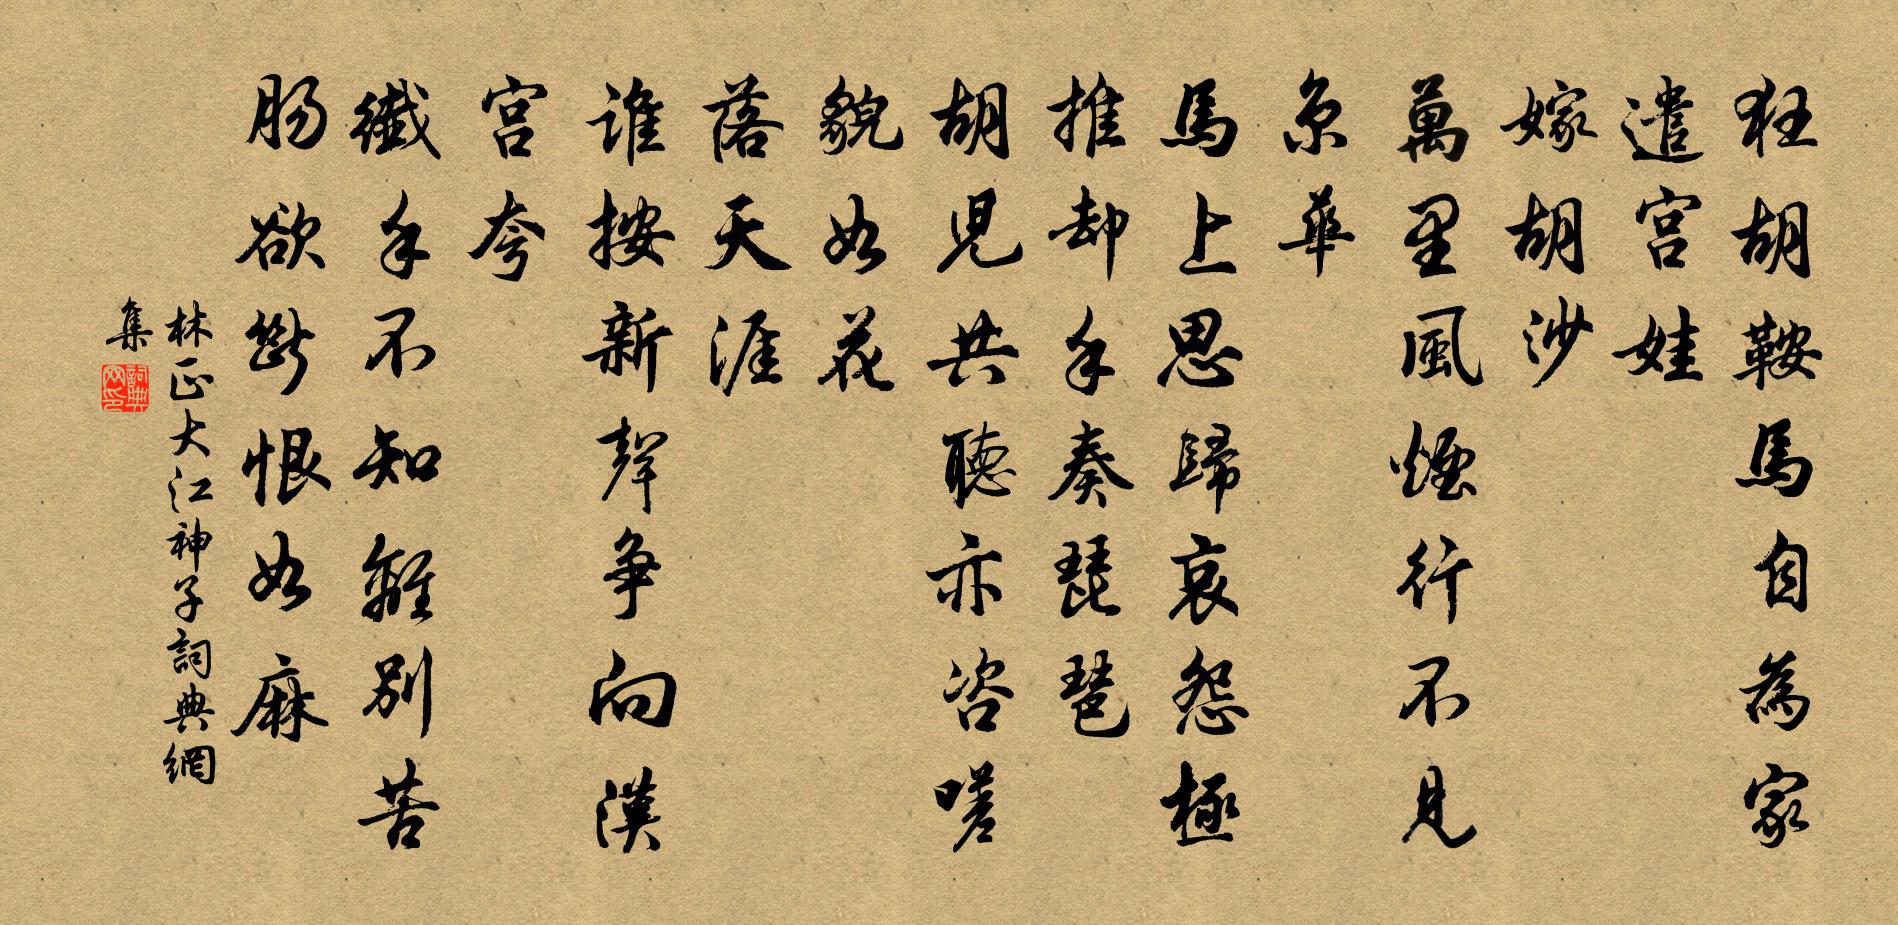 狂胡鞍馬自為家
遣宮娃
嫁胡沙
萬里風煙行不見
京華
馬上思歸哀怨極
推却手奏琵琶
胡兒共聽亦咨嗟
貌如花
落天涯
誰按新聲爭向漢
宮夸
纖手不知離別苦
腸欲斷恨如麻
林正大江神子詞典網
集
詞典網印